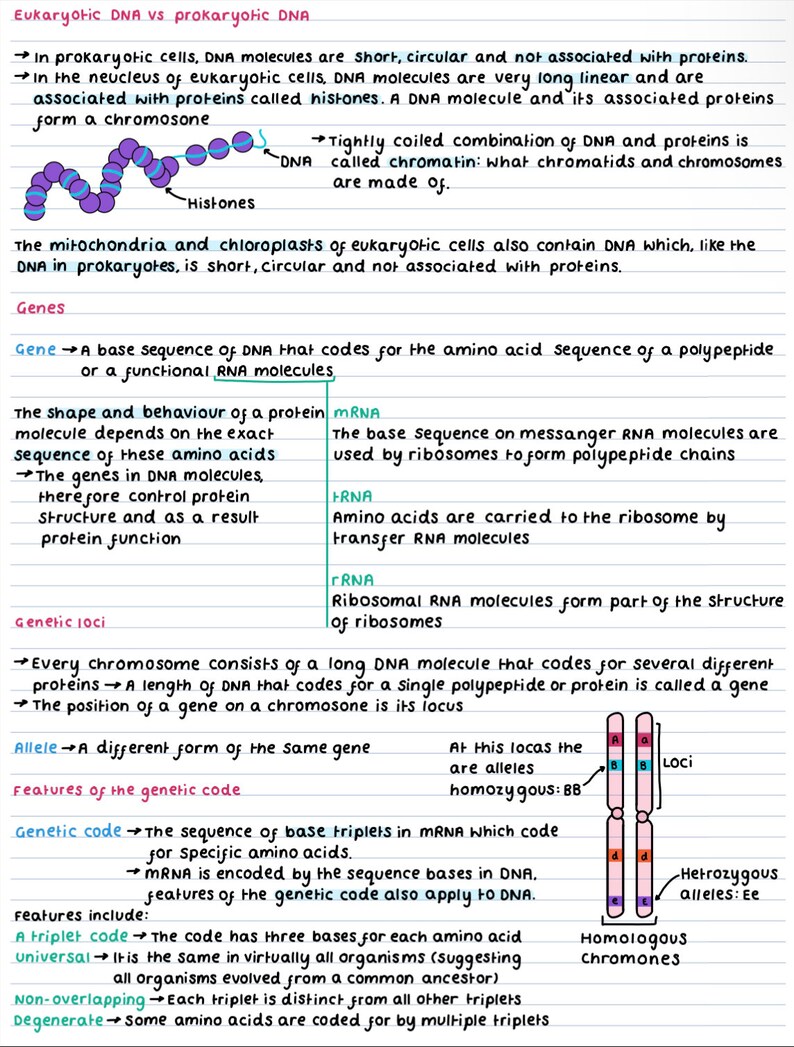 Eukaryotic DNA vs prokaryotic DNA
→ In prokaryotic cells, DNA molecules are short, circular and not associated with proteins.
→ In the neucleus of eukaryotic cells, DNA molecules are very long linear and are
associated with proteins called histones. A DNA molecule and its associated proteins
form a chromosome
→ Tightly coiled combination of DNA and proteins is
called chromatin: what chromatids and chromosomes
are made of.
DNA
Histones
The mitochondria and chloroplasts of eukaryotic cells also contain DNA which, like the
DNA in prokaryotes, is short, circular and not associated with proteins.
Genes
Gene → A base sequence of DNA that codes for the amino acid sequence of a polypeptide
or a functional RNA molecules
The shape and behaviour of a protein
molecule depends on the exact
sequence of these amino acids
→ The genes in DNA molecules,
therefore control protein
structure and as a result
protein function
mRNA
The base sequence on messanger RNA molecules are
used by ribosomes to form polypeptide chains
tRNA
Amino acids are carried to the ribosome by
transfer RNA molecules
rRNA
Ribosomal RNA molecules form part of the structure
of ribosomes
Genetic loci
→ Every chromosome consists of a long DNA molecule that codes for several different
proteins → A length of DNA that codes for a single polypeptide or protein is called a gene
→ The position of a gene on a chromosome is its locus
Allele → A different form of the same gene
At this locas the
are alleles
homozygous: BB
A a
B B
d d
e E
Loci
Hetrozygous
alleles: Ee
Homologous
Chromones
Features of the genetic code
Genetic code → The sequence of base triplets in mRNA which code
for specific amino acids.
→ mRNA is encoded by the sequence bases in DNA,
features of the genetic code also apply to DNA.
Features include:
A triplet code → The code has three bases for each amino acid
Universal → It is the same in virtually all organisms (suggesting
all organisms evolved from a common ancestor)
Non-overlapping → Each triplet is distinct from all other triplets
Degenerate → Some amino acids are coded for by multiple triplets